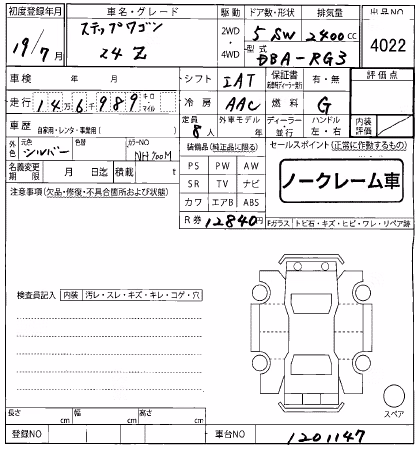 初度登録年月 車名・グレード 駆動 ドア数・形状 排気量 出品NO
19/7月 ステップワゴン 24Z 2WD・4WD 5 SW 2400cc 4022
型式 DBA-RG3
車検 年 月 シフト IAT 保証書 有・無 評価点
走行 146989 キロ・マイル 冷房 AAC 燃料 G
車歴 自家用・レンタ・事業用( ) 定員 8人 外車モデル 年 ディーラー・並行 ハンドル 左・右 内装評価
外色 元色 シルバー 色替 カラーNO NH700M 装備品(純正品に限る) セールスポイント(正常に作動するもの)
名義変更期限 月 日迄 積載 t PS PW AW
ノークレーム車
注意事項(欠品・修復・不具合箇所および状態) SR TV ナビ
カワ エアB ABS
R券 12840円 Fガラス トビ石・キズ・ヒビ・ワレ・リペア跡
検査員記入 内装 汚レ・スレ・キズ・キレ・コゲ・穴
スペア
長さ cm 幅 cm 高さ cm
登録NO 車台NO 1201147